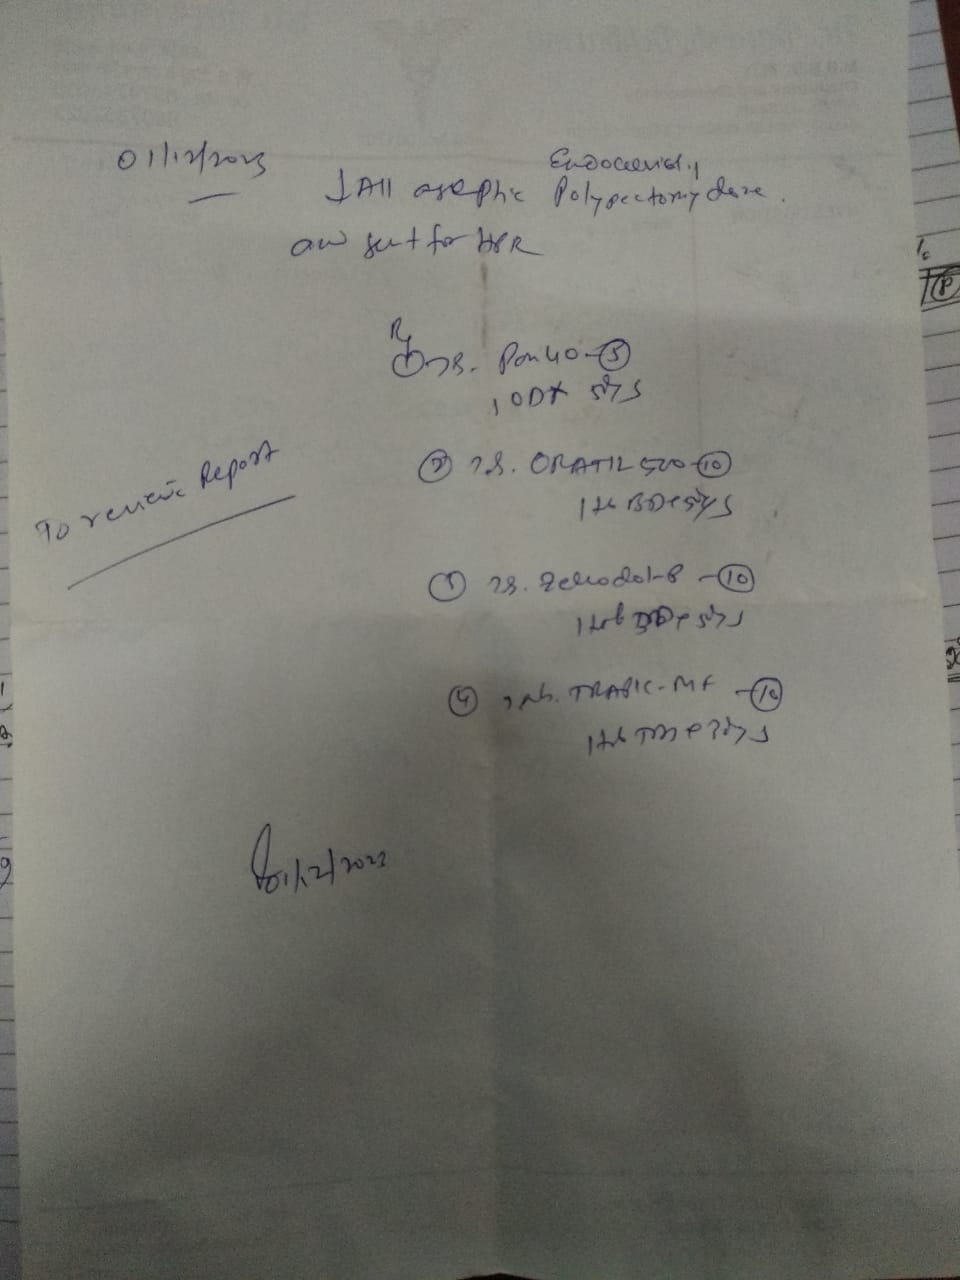 01/12/2023
Endocervical
↓ All aseptic Polypectomy done.
and sent for HPR
Rx
① Tb. Pan 40 - ⑤
1 OD x 5 days
To review Report
② Tb. ORATIL 500 - ⑩
1 tb BD x 5 days
③ Tb. Zerodol-P - ⑩
1 tab BD x 5 days
④ Tab. TRAPIC-MF - ⑩
1 tab TDS x 3 days
01/12/2023